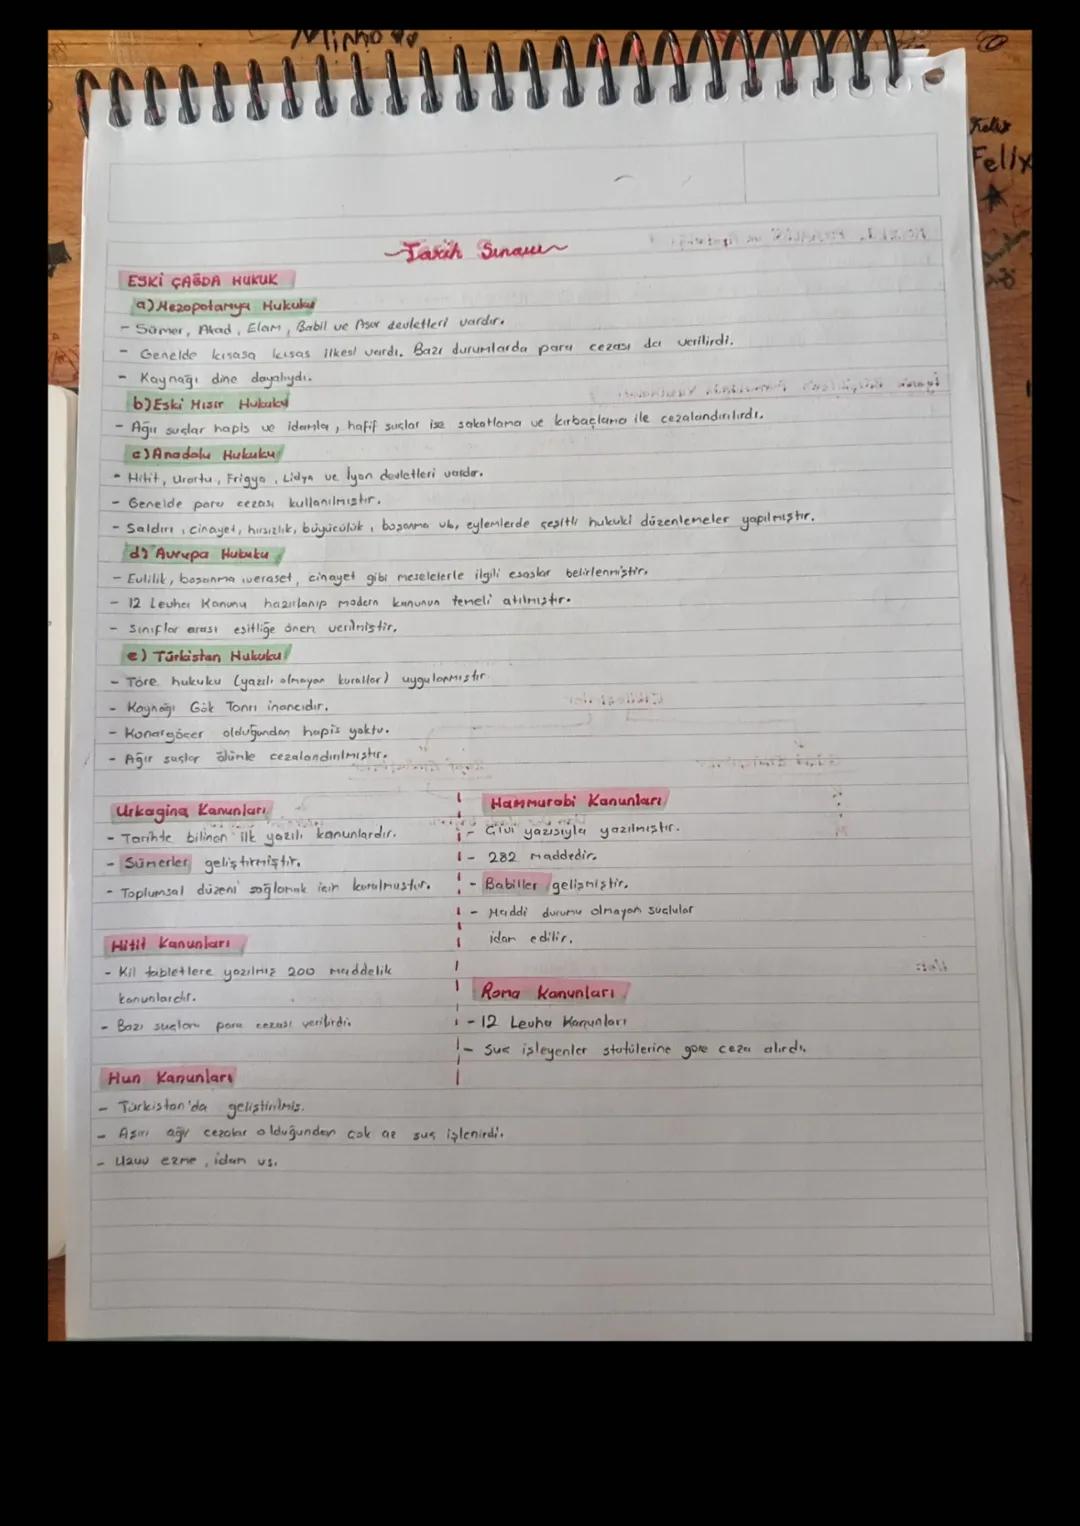 Minho
Felix
Tarih Sınavı
ESKİ ÇAĞDA HUKUK
a) Mezopotamya Hukuku
- Sümer, Akad, Elam, Babil ve Asur devletleri vardır.
- Genelde kısasa kısas ilkesi vardı. Bazı durumlarda para cezası da verilirdi.
- Kaynağı dine dayalıydı.
b) Eski Mısır Hukuku
- Ağır suçlar hapis ve idamla, hafif suçlar ise sakatlama ve kırbaçlama ile cezalandırılırdı.
c) Anadolu Hukuku
- Hitit, Urartu, Frigya, Lidya ve İyon devletleri vardır.
- Genelde para cezası kullanılmıştır.
- Saldırı, cinayet, hırsızlık, büyücülük, boşanma vb, eylemlerde çeşitli hukuki düzenlemeler yapılmıştır.
d) Avrupa Hukuku
- Evlilik, boşanma, veraset, cinayet gibi meselelerle ilgili esaslar belirlenmiştir.
- 12 Levha Kanunu hazırlanıp modern kanunun temeli atılmıştır.
- Sınıflar arası eşitliğe önem verilmiştir.
e) Türkistan Hukuku
- Töre hukuku (yazılı olmayan kurallar) uygulanmıştır.
- Kaynağı Gök Tanrı inancıdır.
- Konargöçer olduğundan hapis yoktu.
- Ağır suçlar ölümle cezalandırılmıştır.
Urkagina Kanunları
- Tarihte bilinen ilk yazılı kanunlardır.
- Sümerler geliştirmiştir.
- Toplumsal düzeni sağlamak için kurulmuştur.
Hitit Kanunları
- Kil tabletlere yazılmış 200 maddelik
kanunlardır.
- Bazı suçlara para cezası verilirdi.
Hammurabi Kanunları
- Çivi yazısıyla yazılmıştır.
- 282 maddedir.
- Babiller gelişmiştir.
- Maddi durumu olmayan suçlular
idam edilir.
Roma Kanunları
- 12 Levha Kanunları
- Suç işleyenler statülerine göre ceza alırdı.
Hun Kanunları
- Türkistan'da geliştirilmiş.
- Aşırı ağır cezalar olduğundan çok az suç işlenirdi.
- Uzuv ezme, idam vs.